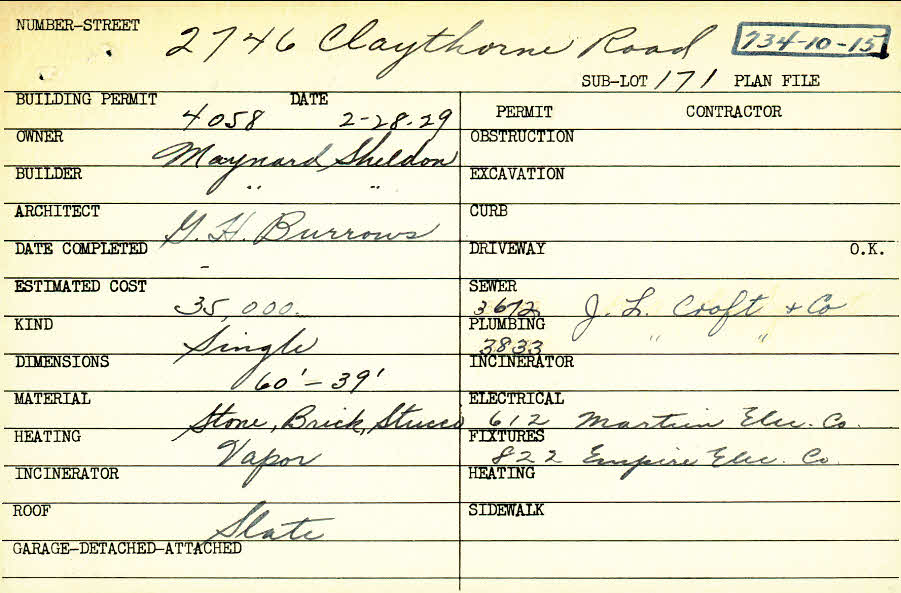 NUMBER-STREET 2746 Claythorne Road 734-10-15
SUB-LOT 171 PLAN FILE
BUILDING PERMIT 4058 DATE 2-28-29
PERMIT CONTRACTOR
OWNER Maynard Sheldon
OBSTRUCTION
BUILDER " "
EXCAVATION
ARCHITECT G. H. Burrows
CURB
DATE COMPLETED -
DRIVEWAY O.K.
ESTIMATED COST 35,000
SEWER 3672 J. L. Croft & Co
KIND Single
PLUMBING 3833 " "
DIMENSIONS 60' - 39'
INCINERATOR
MATERIAL Stone, Brick, Stucco
ELECTRICAL 612 Martin Elec. Co.
HEATING Vapor
FIXTURES 822 Empire Elec. Co.
INCINERATOR
HEATING
ROOF Slate
SIDEWALK
GARAGE-DETACHED-ATTACHED